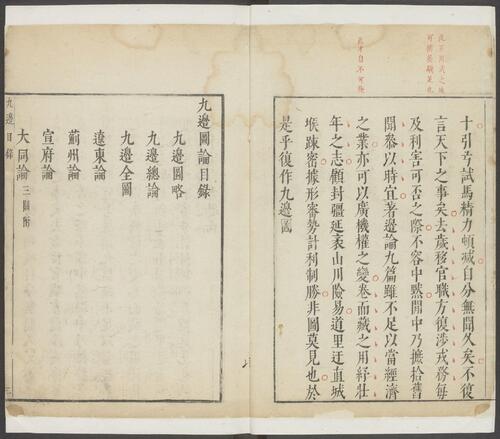 十引弓試馬精力頓減自分無聞久矣不復
言天下之事矣去歲移官職方復渉戎務每
及利害可否之際不容中默閒中乃摭拾舊
聞叅以時宜著邊論九篇雖不足以當經濟
之業亦可以廣機權之變卷而藏之用紓壯
年之志顧封疆延袤山川險易道里迂直城
堠踈密據形審勢計利制勝非圖莫見也於
是乎復作九邊圖
九邊圖論目録
九邊圖略
九邊總論
九邊全圖
遼東論
薊州論
宣府論
大同論 三圖附
九邊目録